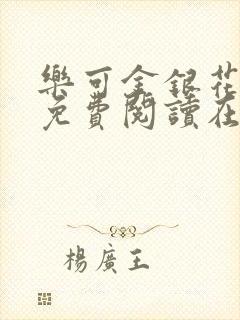 樂可金銀花
免費閱讀在
楊廣王